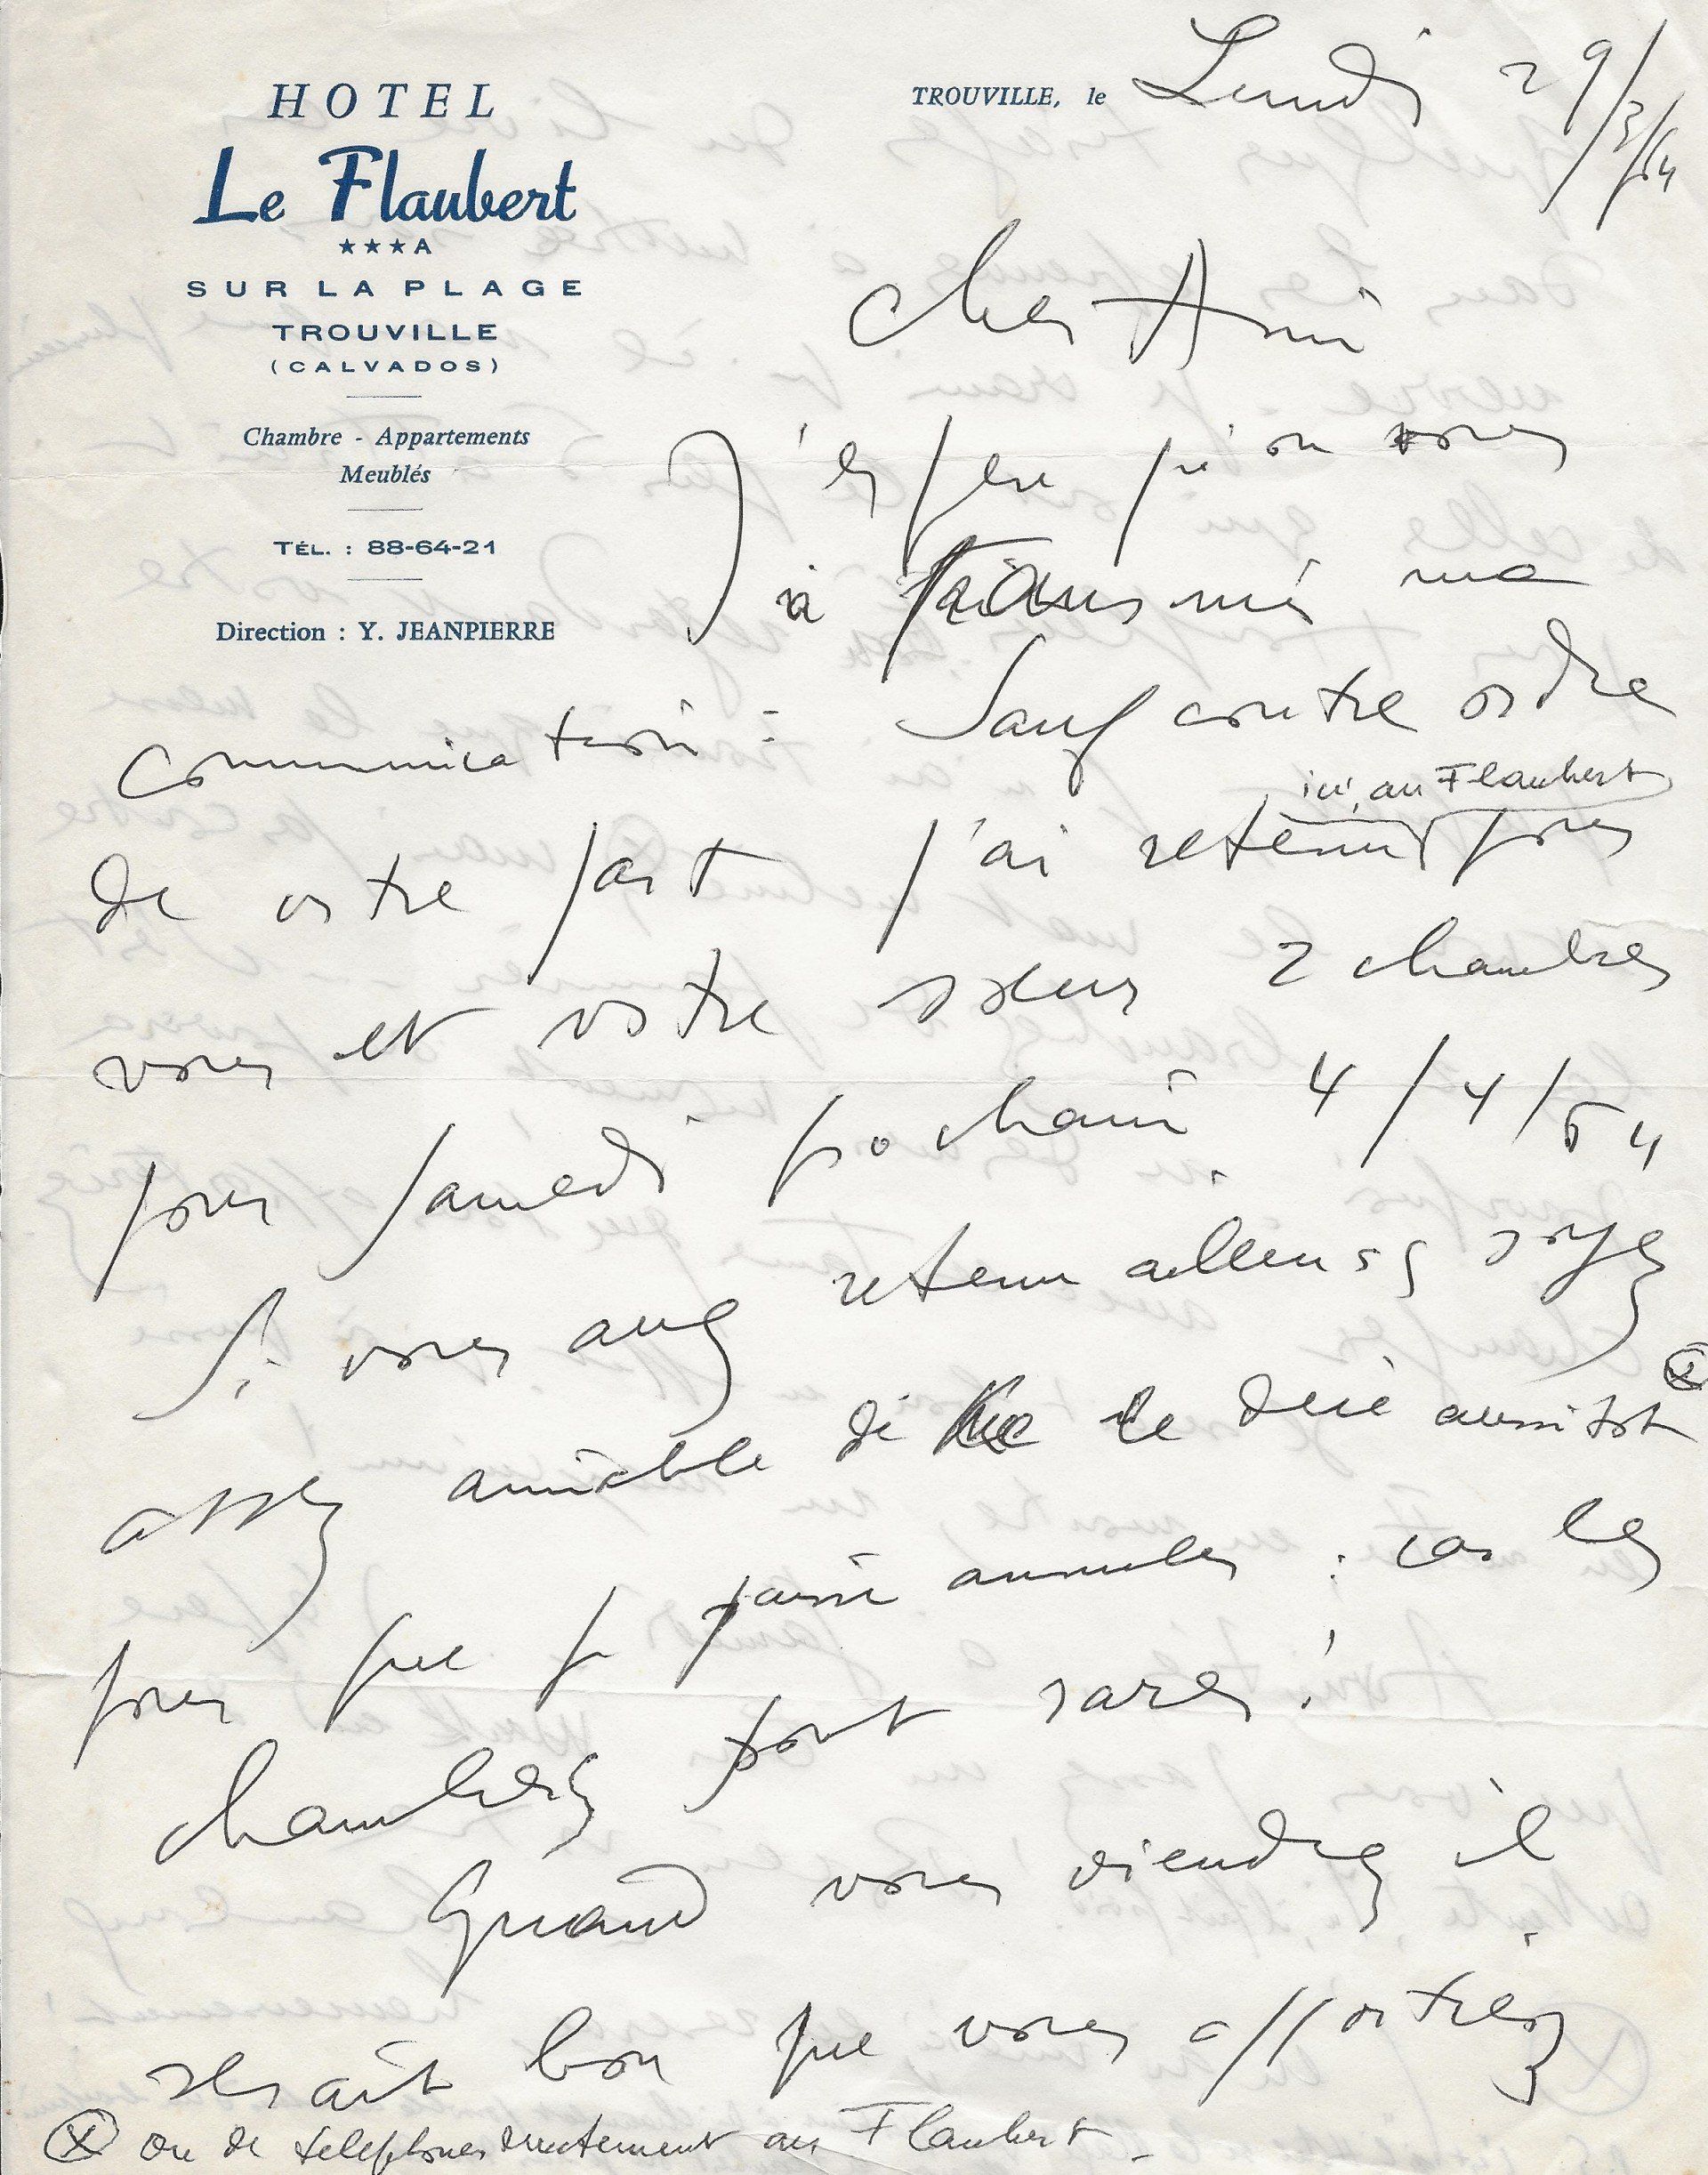 HOTEL
Le Flaubert
★★★A
SUR LA PLAGE
TROUVILLE
(CALVADOS)
Chambre - Appartements
Meublés
TÉL. : 88-64-21
Direction : Y. JEANPIERRE
TROUVILLE, le Lundi 29/3/64
Cher Ami
J'espere qu'on vous
a transmis ma
communication : Sauf contre ordre
de votre part j'ai retenu ici, au Flaubert pour
vous et votre soeur 2 chambres
pour Samedi prochain 4/4/64
Si vous avez retenu ailleurs soyez
assez aimable de le dire aussitot ⊗
pour que je puisse annuler : car les
chambres sont rares !
Quand vous viendrez il
serait bon que vous apportiez
⊗ ou de telephoner directement au Flaubert -